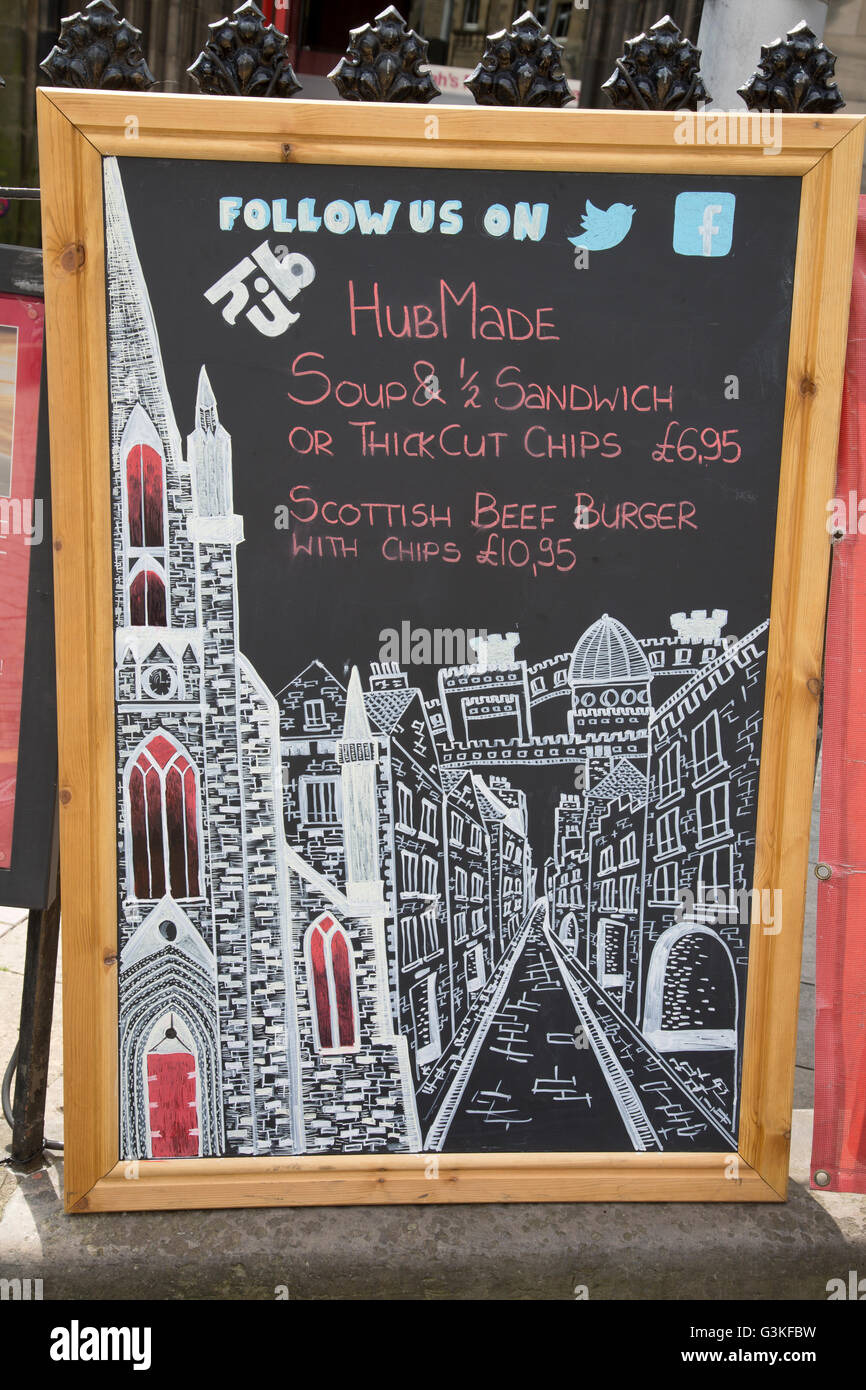 FOLLOW US ON
f
hub
HUBMADE
SOUP & ½ SANDWICH
OR THICK CUT CHIPS £6,95
SCOTTISH BEEF BURGER
WITH CHIPS £10,95
alamy
Image ID: G3KFBW
www.alamy.com